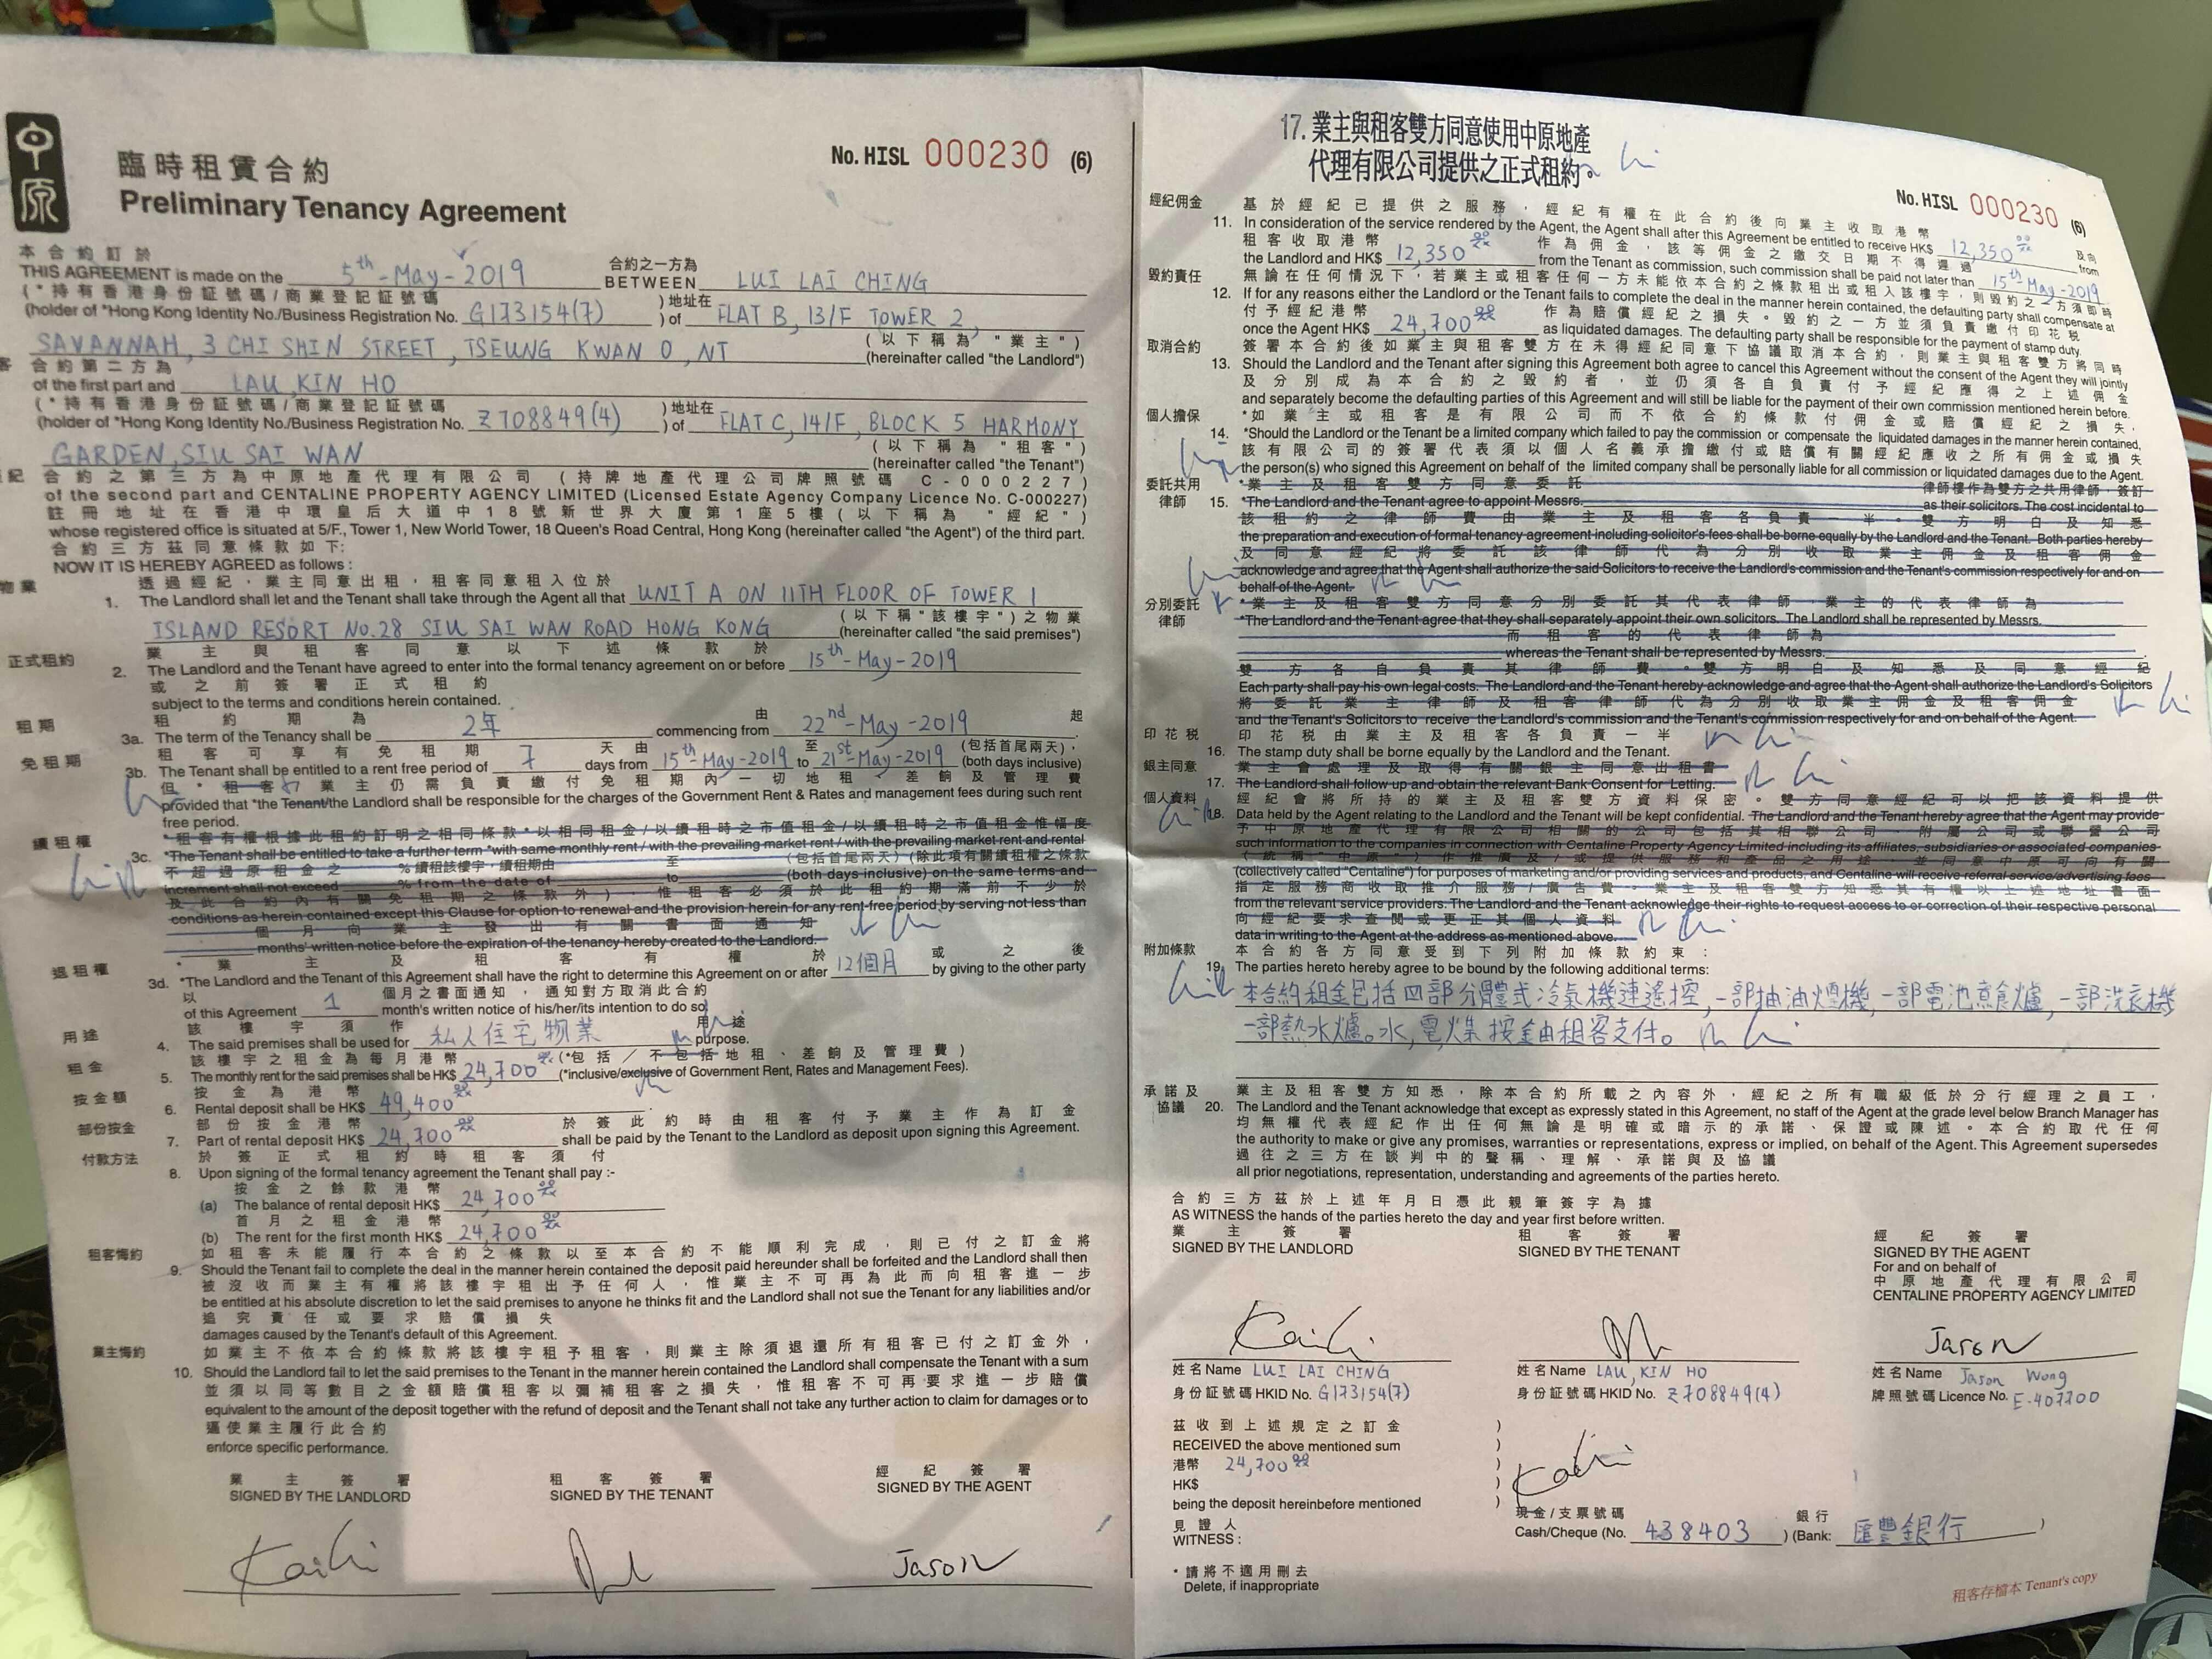 中原
臨時租賃合約
Preliminary Tenancy Agreement
No. HISL 000230 (6)
本合約訂於
THIS AGREEMENT is made on the 5th-May-2019
合約之一方為
BETWEEN LUI LAI CHING
(*持有香港身份証號碼/商業登記証號碼
)地址在
(holder of *Hong Kong Identity No./Business Registration No. G173154(7) ) of FLAT B, 13/F TOWER 2,
SAVANNAH, 3 CHI SHIN STREET, TSEUNG KWAN O, NT
(以下稱為"業主")
(hereinafter called "the Landlord")
合約第二方為
of the first part and LAU KIN HO
(*持有香港身份証號碼/商業登記証號碼
)地址在
(holder of *Hong Kong Identity No./Business Registration No. Z708849(4) ) of FLAT C, 14/F, BLOCK 5 HARMONY
GARDEN, SIU SAI WAN
(以下稱為"租客")
(hereinafter called "the Tenant")
合約之第三方為中原地產代理有限公司(持牌地產代理公司牌照號碼C-000227)
of the second part and CENTALINE PROPERTY AGENCY LIMITED (Licensed Estate Agency Company Licence No. C-000227)
註冊地址在香港中環皇后大道中18號新世界大廈第1座5樓(以下稱為"經紀")
whose registered office is situated at 5/F., Tower 1, New World Tower, 18 Queen's Road Central, Hong Kong (hereinafter called "the Agent") of the third part.
合約三方茲同意條款如下:
NOW IT IS HEREBY AGREED as follows :
物業
透過經紀,業主同意出租,租客同意租入位於
1. The Landlord shall let and the Tenant shall take through the Agent all that UNIT A ON 11TH FLOOR OF TOWER 1
ISLAND RESORT NO.28 SIU SAI WAN ROAD HONG KONG
(以下稱"該樓宇")之物業
(hereinafter called "the said premises")
正式租約
業主與租客同意以下述條款於
2. The Landlord and the Tenant have agreed to enter into the formal tenancy agreement on or before 15th-May-2019
或之前簽署正式租約
subject to the terms and conditions herein contained.
租期
租約期為 由 起
3a. The term of the Tenancy shall be 2年 commencing from 22nd-May-2019
免租期
租客可享有免租期 天由 至 (包括首尾兩天),
3b. The Tenant shall be entitled to a rent free period of 7 days from 15th-May-2019 to 21st-May-2019 (both days inclusive)
但*租客/業主仍需負責繳付免租期內一切地租、差餉及管理費
provided that *the Tenant/the Landlord shall be responsible for the charges of the Government Rent & Rates and management fees during such rent
free period.
續租權
*租客有權根據此租約訂明之相同條款*以相同租金/以續租時之市值租金/以續租時之市值租金惟幅度
3c. *The Tenant shall be entitled to take a further term *with same monthly rent / with the prevailing market rent / with the prevailing market rent and rental
不超過原租金之 %續租該樓宇,續租期由 至 (包括首尾兩天)(除此項有關續租權之條款
increment shall not exceed % from the date of to (both days inclusive) on the same terms and
及此合約內有關免租期之條款外),惟租客必須於此租約期滿前不少於
conditions as herein contained except this Clause for option to renewal and the provision herein for any rent-free period by serving not less than
個月向業主發出有關書面通知
months' written notice before the expiration of the tenancy hereby created to the Landlord.
退租權
*業主及租客有權於 或之後
3d. *The Landlord and the Tenant of this Agreement shall have the right to determine this Agreement on or after 12個月 by giving to the other party
以 個月之書面通知,通知對方取消此合約
of this Agreement 1 month's written notice of his/her/its intention to do so.
用途
該樓宇須作 用途
4. The said premises shall be used for 私人住宅物業 purpose.
租金
該樓宇之租金為每月港幣 (*包括/不包括地租、差餉及管理費)
5. The monthly rent for the said premises shall be HK$ 24,700 (*inclusive/exclusive of Government Rent, Rates and Management Fees).
按金額
按金為港幣
6. Rental deposit shall be HK$ 49,400
部份按金
部份按金港幣 於簽此約時由租客付予業主作為訂金
7. Part of rental deposit HK$ 24,700 shall be paid by the Tenant to the Landlord as deposit upon signing this Agreement.
付款方法
於簽正式租約時租客須付
8. Upon signing of the formal tenancy agreement the Tenant shall pay :-
按金之餘款港幣
(a) The balance of rental deposit HK$ 24,700
首月之租金港幣
(b) The rent for the first month HK$ 24,700
租客悔約
如租客未能履行本合約之條款以至本合約不能順利完成,則已付之訂金將
9. Should the Tenant fail to complete the deal in the manner herein contained the deposit paid hereunder shall be forfeited and the Landlord shall then
被沒收而業主有權將該樓宇租出予任何人,惟業主不可再為此而向租客進一步
be entitled at his absolute discretion to let the said premises to anyone he thinks fit and the Landlord shall not sue the Tenant for any liabilities and/or
追究責任或要求賠償損失
damages caused by the Tenant's default of this Agreement.
業主悔約
如業主不依本合約條款將該樓宇租予租客,則業主除須退還所有租客已付之訂金外,
10. Should the Landlord fail to let the said premises to the Tenant in the manner herein contained the Landlord shall compensate the Tenant with a sum
並須以同等數目之金額賠償租客以彌補租客之損失,惟租客不可再要求進一步賠償
equivalent to the amount of the deposit together with the refund of deposit and the Tenant shall not take any further action to claim for damages or to
逼使業主履行此合約
enforce specific performance.
業主簽署
SIGNED BY THE LANDLORD
租客簽署
SIGNED BY THE TENANT
經紀簽署
SIGNED BY THE AGENT
Jason
17. 業主與租客雙方同意使用中原地產
代理有限公司提供之正式租約。
No. HISL 000230 (6)
經紀佣金
基於經紀已提供之服務,經紀有權在此合約後向業主收取港幣 及向
11. In consideration of the service rendered by the Agent, the Agent shall after this Agreement be entitled to receive HK$ 12,350 from
租客收取港幣 作為佣金,該等佣金之繳交日期不得遲過
the Landlord and HK$ 12,350 from the Tenant as commission, such commission shall be paid not later than 15th-May-2019
毀約責任
無論在任何情況下,若業主或租客任何一方未能依本合約之條款租出或租入該樓宇,則毀約之一方須即時
12. If for any reasons either the Landlord or the Tenant fails to complete the deal in the manner herein contained, the defaulting party shall compensate at
付予經紀港幣 作為賠償經紀之損失。毀約之一方並須負責繳付印花稅
once the Agent HK$ 24,700 as liquidated damages. The defaulting party shall be responsible for the payment of stamp duty.
取消合約
簽署本合約後如業主與租客雙方在未得經紀同意下協議取消本合約,則業主與租客雙方將同時
13. Should the Landlord and the Tenant after signing this Agreement both agree to cancel this Agreement without the consent of the Agent they will jointly
及分別成為本合約之毀約者,並仍須各自負責付予經紀應得之上述佣金
and separately become the defaulting parties of this Agreement and will still be liable for the payment of their own commission mentioned herein before.
個人擔保
*如業主或租客是有限公司而不依合約條款付佣金或賠償經紀之損失,
14. *Should the Landlord or the Tenant be a limited company which failed to pay the commission or compensate the liquidated damages in the manner herein contained,
該有限公司的簽署代表須以個人名義承擔繳付或賠償有關經紀應收之所有佣金或損失
the person(s) who signed this Agreement on behalf of the limited company shall be personally liable for all commission or liquidated damages due to the Agent.
委託共用
律師
*業主及租客雙方同意委託 律師樓作為雙方之共用律師,簽訂
15. *The Landlord and the Tenant agree to appoint Messrs. as their solicitors. The cost incidental to
該租約之律師費由業主及租客各負責一半。雙方明白及知悉
the preparation and execution of formal tenancy agreement including solicitor's fees shall be borne equally by the Landlord and the Tenant. Both parties hereby
及同意經紀將委託該律師代為分別收取業主佣金及租客佣金
acknowledge and agree that the Agent shall authorize the said Solicitors to receive the Landlord's commission and the Tenant's commission respectively for and on
behalf of the Agent.
分別委託
律師
*業主及租客雙方同意分別委託其代表律師,業主的代表律師為
*The Landlord and the Tenant agree that they shall separately appoint their own solicitors. The Landlord shall be represented by Messrs.
而租客的代表律師為
whereas the Tenant shall be represented by Messrs.
雙方各自負責其律師費。雙方明白及知悉及同意經紀
Each party shall pay his own legal costs. The Landlord and the Tenant hereby acknowledge and agree that the Agent shall authorize the Landlord's Solicitors
將委託業主律師及租客律師代為分別收取業主佣金及租客佣金
and the Tenant's Solicitors to receive the Landlord's commission and the Tenant's commission respectively for and on behalf of the Agent.
印花稅
印花稅由業主及租客各負責一半
16. The stamp duty shall be borne equally by the Landlord and the Tenant.
銀主同意
業主會處理及取得有關銀主同意出租書
17. The Landlord shall follow up and obtain the relevant Bank Consent for Letting.
個人資料
經紀會將所持的業主及租客雙方資料保密。雙方同意經紀可以把該資料提供
18. Data held by the Agent relating to the Landlord and the Tenant will be kept confidential. The Landlord and the Tenant hereby agree that the Agent may provide
予中原地產代理有限公司相關的公司包括其相聯公司、附屬公司或聯營公司
such information to the companies in connection with Centaline Property Agency Limited including its affiliates, subsidiaries or associated companies
(統稱"中原")作推廣及/或提供服務和產品之用途,並同意中原可向有關
(collectively called "Centaline") for purposes of marketing and/or providing services and products, and Centaline will receive referral service/advertising fees
指定服務商收取推介服務/廣告費。業主及租客雙方知悉其有權以上述地址書面
from the relevant service providers. The Landlord and the Tenant acknowledge their rights to request access to or correction of their respective personal
向經紀要求查閱或更正其個人資料
data in writing to the Agent at the address as mentioned above.
附加條款
本合約各方同意受到下列附加條款約束:
19. The parties hereto hereby agree to be bound by the following additional terms:
本合約租金包括四部分體式冷氣機連遙控,一部抽油煙機,一部電池煮食爐,一部洗衣機
一部熱水爐。水,電,煤按金由租客支付。
承諾及
協議
業主及租客雙方知悉,除本合約所載之內容外,經紀之所有職級低於分行經理之員工,
20. The Landlord and the Tenant acknowledge that except as expressly stated in this Agreement, no staff of the Agent at the grade level below Branch Manager has
均無權代表經紀作出任何無論是明確或暗示的承諾、保證或陳述。本合約取代任何
the authority to make or give any promises, warranties or representations, express or implied, on behalf of the Agent. This Agreement supersedes
過往之三方在談判中的聲稱、理解、承諾與及協議
all prior negotiations, representation, understanding and agreements of the parties hereto.
合約三方茲於上述年月日憑此親筆簽字為據
AS WITNESS the hands of the parties hereto the day and year first before written.
業主簽署
SIGNED BY THE LANDLORD
租客簽署
SIGNED BY THE TENANT
經紀簽署
SIGNED BY THE AGENT
For and on behalf of
中原地產代理有限公司
CENTALINE PROPERTY AGENCY LIMITED
Jason
姓名Name LUI LAI CHING
身份証號碼HKID No. G173154(7)
姓名Name LAU, KIN HO
身份証號碼HKID No. Z708849(4)
姓名Name Jason Wong
牌照號碼Licence No. E-407700
茲收到上述規定之訂金
RECEIVED the above mentioned sum
港幣 24,700
HK$
being the deposit hereinbefore mentioned
見證人
WITNESS :
現金/支票號碼
Cash/Cheque (No. 438403 )
銀行
(Bank: 匯豐銀行 )
*請將不適用刪去
Delete, if inappropriate
租客存檔本 Tenant's copy